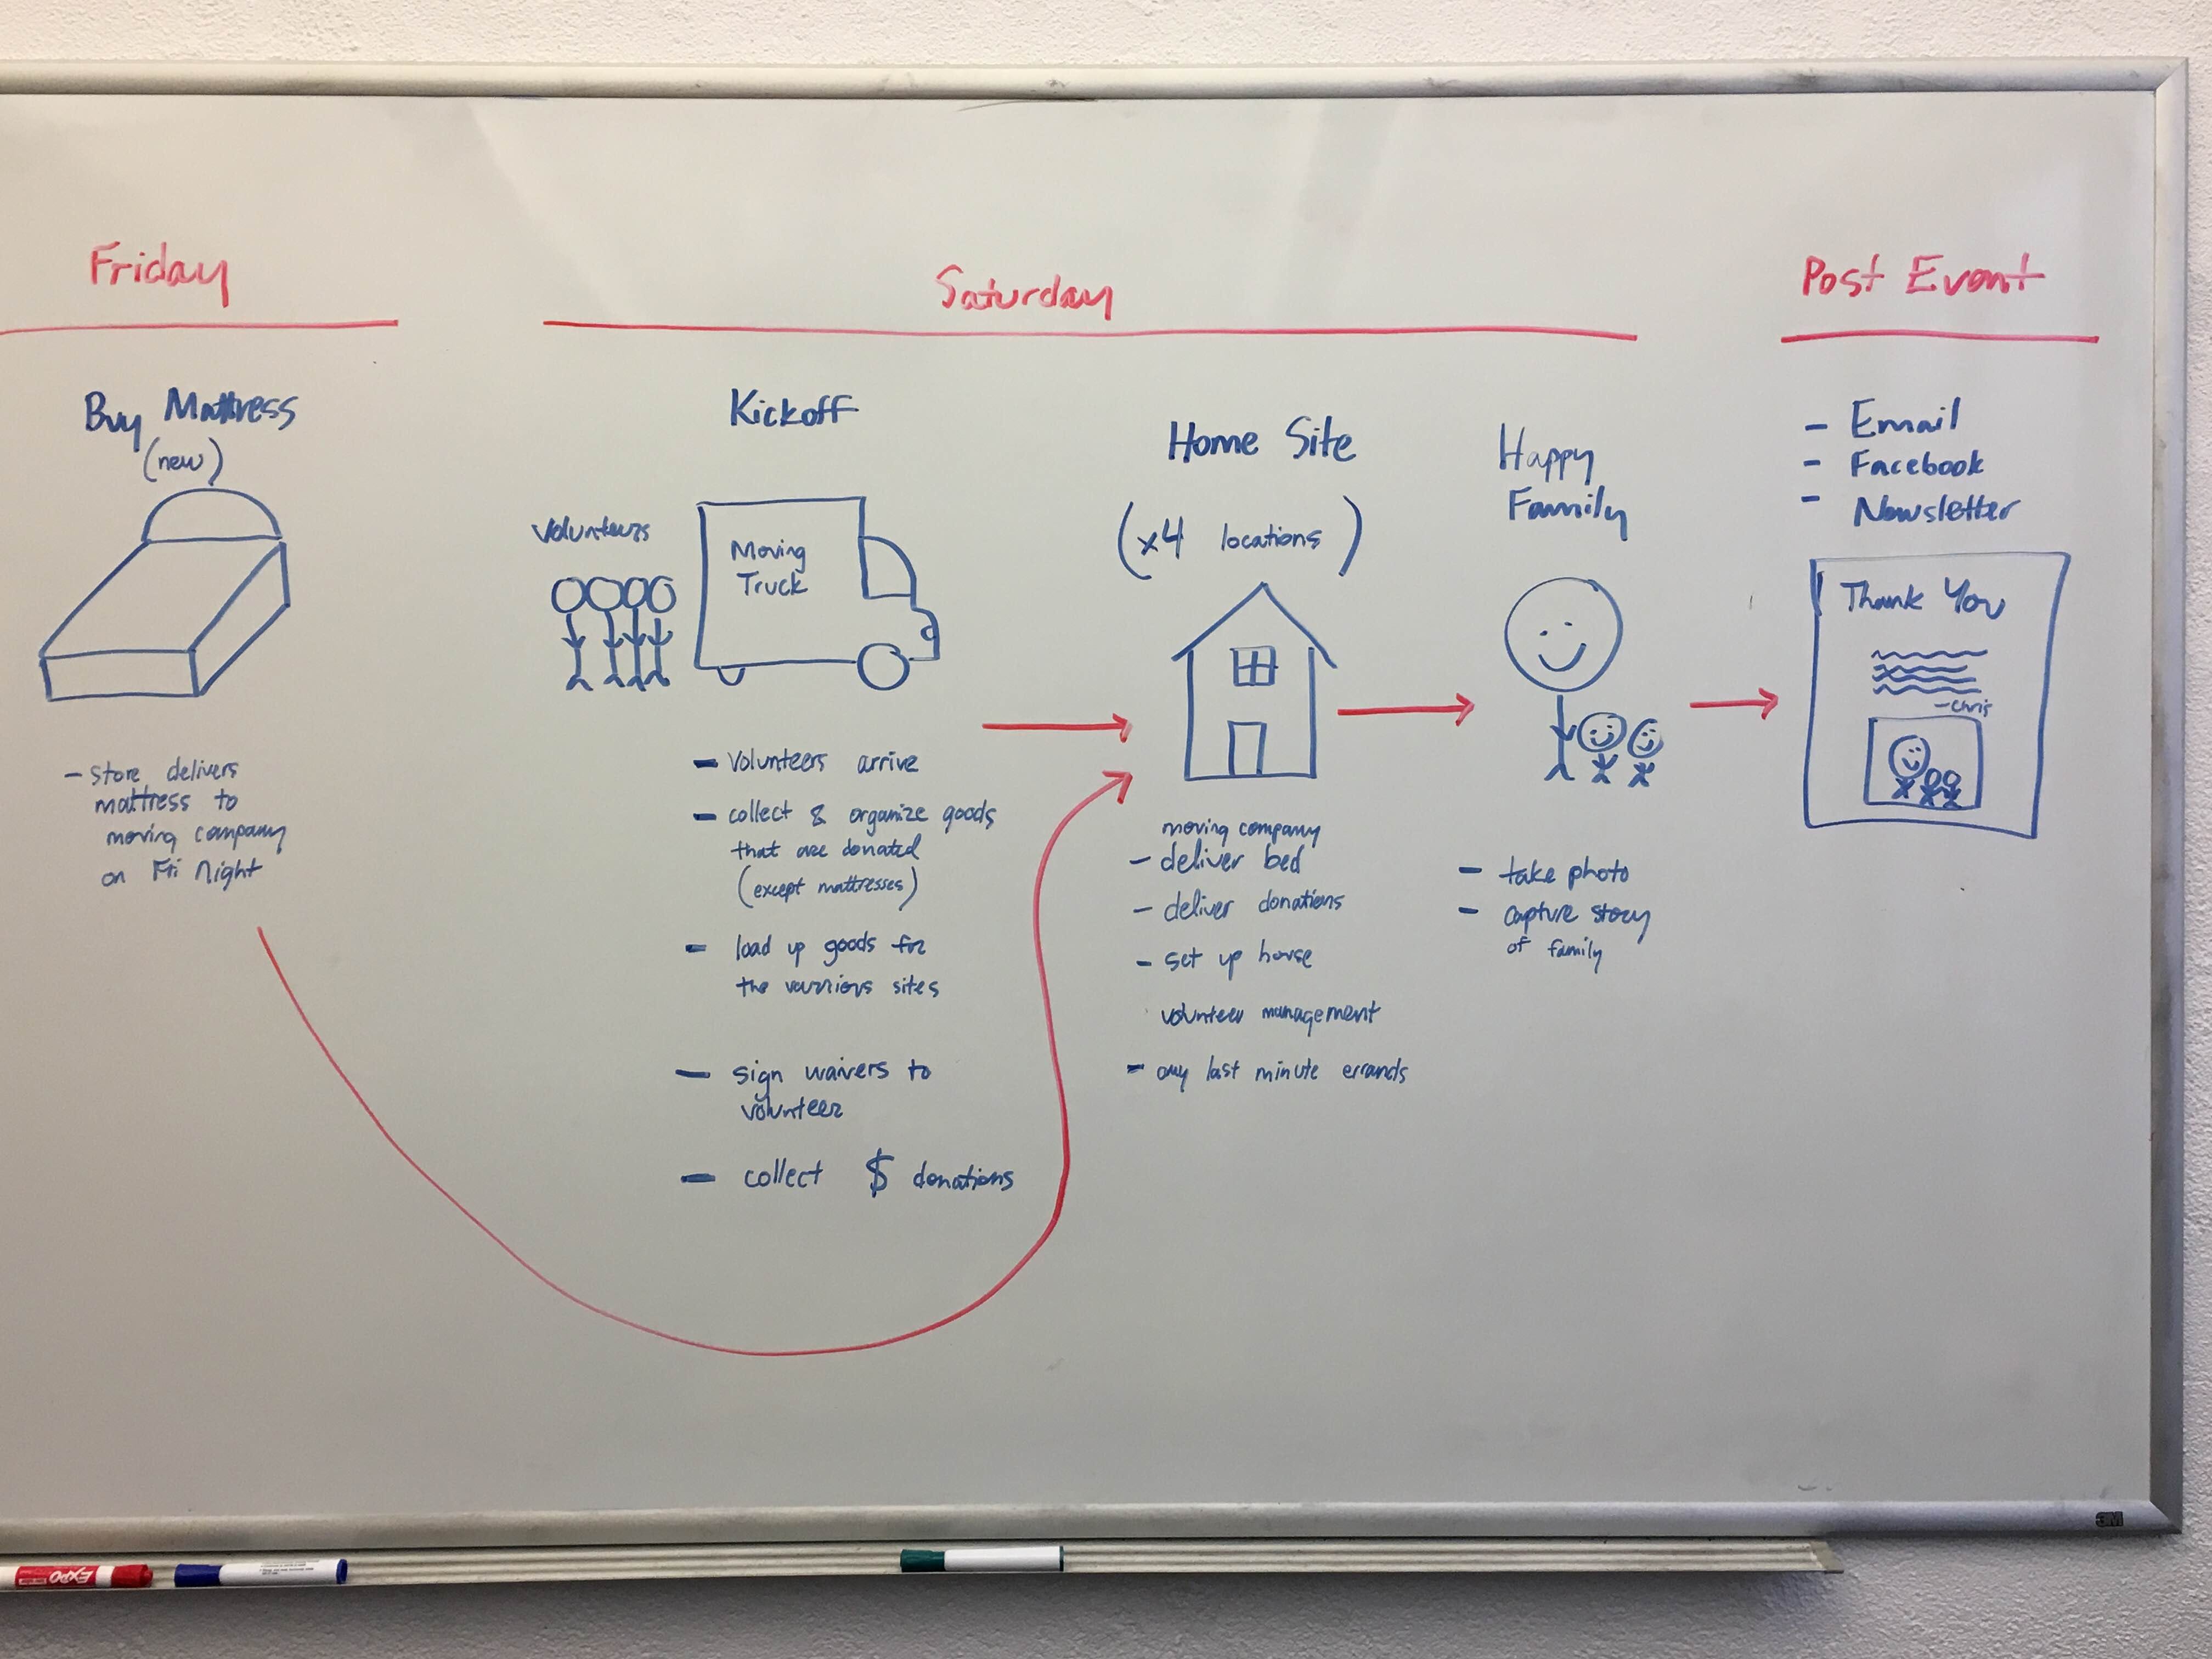 Friday
Buy Mattress
(new)
- store delivers
mattress to
moving company
on Fri Night
Saturday
Kickoff
Volunteers
Moving
Truck
- Volunteers arrive
- collect & organize goods
that are donated
(except mattresses)
- load up goods for
the various sites
- sign waivers to
volunteer
- collect $ donations
Home Site
(x4 locations)
moving company
- deliver bed
- deliver donations
- set up house
volunteer management
- any last minute errands
Happy
Family
- take photo
- capture story
of family
Post Event
- Email
- Facebook
- Newsletter
Thank You
-Chris
3M
EXPO